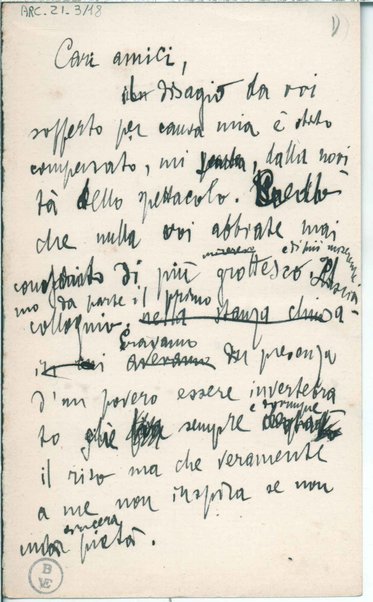 ARC. 21. 3/18
1)
Cari amici,
il disagio da voi
sofferto per causa mia è stato
compensato, mi , dalla novi
tà dello spettacolo. Credo
che nulla voi abbiate mai
e di più
di più grottesco. Lascia
mo da parte il primo
colloquio nella stanza chiusa
Eravamo
avevamo in presenza
d'un povero essere invertebra
e dovunque
to che sempre
il riso ma che veramente
a me non inspira se non
sincera
pietà.
B
VE